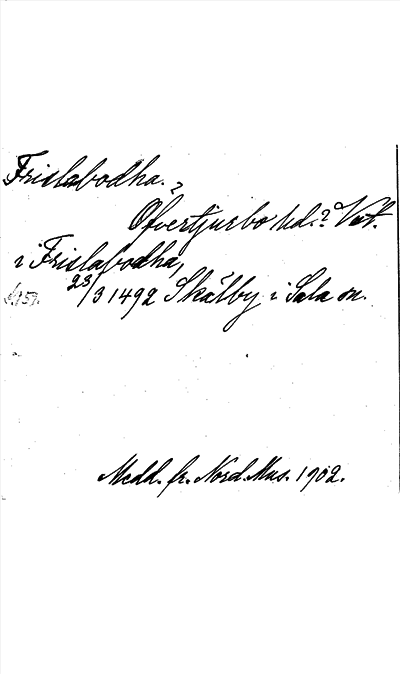 Frislabodha.?
Öfvertjurbo hd.? Vst.
i Frislabodha,
23/3 1492 Skålby i Sala sn.
Medd. fr. Nord. Mus. 1902.